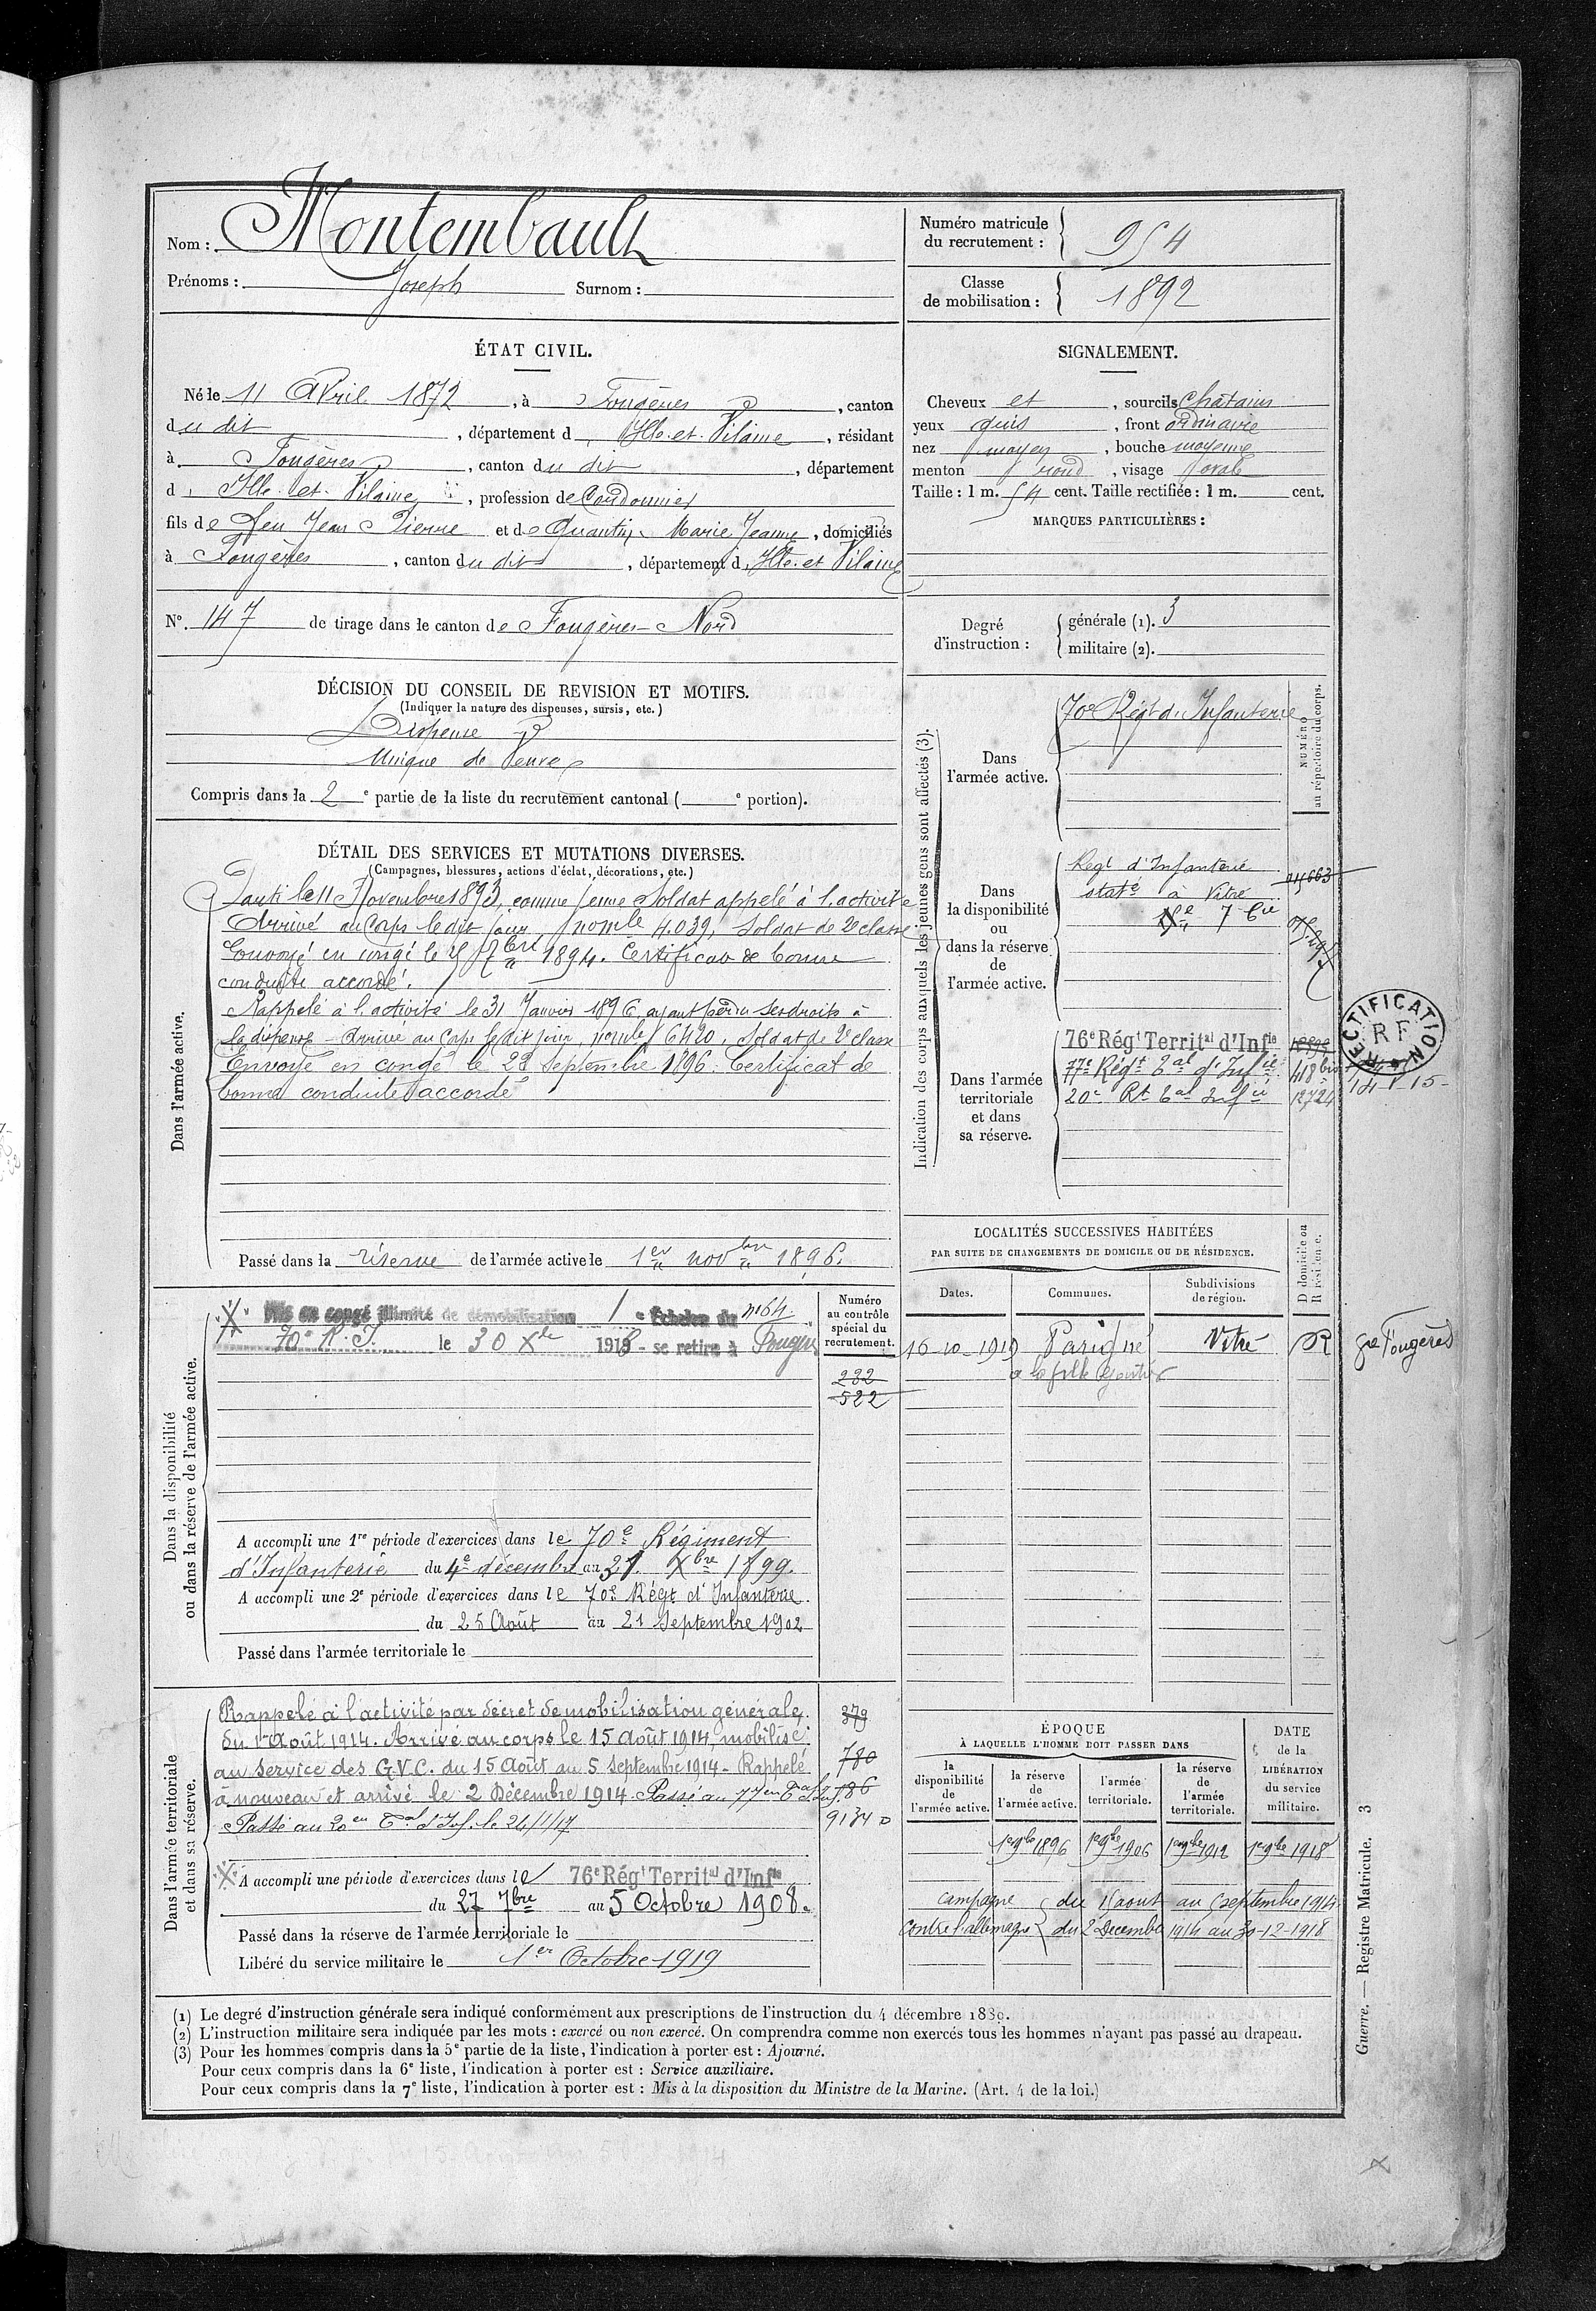 Nom : Montembault
Prénoms : Joseph Surnom :
Numéro matricule du recrutement : 954
Classe de mobilisation : 1892
ÉTAT CIVIL.
Né le 11 Avril 1872, à Fougères, canton
du dit, département d'Ille-et-Vilaine, résidant
à Fougères, canton du dit, département
d'Ille-et-Vilaine, profession de Cordonnier
fils de feu Jean Pierre et de Quantin, Marie Jeanne, domiciliés
à Fougères, canton du dit, département d'Ille-et-Vilaine
N° 147 de tirage dans le canton de Fougères-Nord
SIGNALEMENT.
Cheveux et, sourcils châtains
yeux gris, front ordinaire
nez moyen, bouche moyenne
menton rond, visage ovale
Taille : 1 m. 54 cent. Taille rectifiée : 1 m. cent.
MARQUES PARTICULIÈRES :
Degré d'instruction : générale (1). 3
militaire (2).
DÉCISION DU CONSEIL DE REVISION ET MOTIFS.
(Indiquer la nature des dispenses, sursis, etc.)
Dispensé
Unique de Veuve
Compris dans la 2e partie de la liste du recrutement cantonal ( e portion).
DÉTAIL DES SERVICES ET MUTATIONS DIVERSES.
(Campagnes, blessures, actions d'éclat, décorations, etc.)
Dans l'armée active.
Parti le 11 Novembre 1893, comme jeune Soldat appelé à l'activité
Arrivé au Corps le dit jour, nomle 4.039, Soldat de 2e classe
Envoyé en congé le 25 7bre 1894. Certificat de bonne
conduite accordé.
Rappelé à l'activité le 31 Janvier 1896 ayant perdu ses droits à
la dispense - Arrivé au Corps le dit jour, nomle 6420, Soldat de 2e classe
Envoyé en congé le 22 septembre 1896. Certificat de
bonne conduite accordé
Passé dans la réserve de l'armée active le 1er novbre 1896.
Indication des corps auxquels les jeunes gens sont affectés (3).
NUMÉRO au répertoire du corps.
Dans l'armée active.
70e Régt d'Infanterie
Dans la disponibilité ou dans la réserve de l'armée active.
Regt d'Infanterie
staté à Vitré
7 Cie
Dans l'armée territoriale et dans sa réserve.
76e Régt Territal d'Infie
77e Régt Tal d'Infie 418 bis
20e Rt Tal Infie 12724
RECTIFICATION
RF
14-1-15-
LOCALITÉS SUCCESSIVES HABITÉES
PAR SUITE DE CHANGEMENTS DE DOMICILE OU DE RÉSIDENCE.
Dates. Communes. Subdivisions de région. D domicile ou R résidence.
16-10-1919 Parigné Vitré R gie Fougères
Dans la disponibilité ou dans la réserve de l'armée active.
Numéro au contrôle spécial du recrutement.
X Mis en congé illimité de démobilisation 1e Echelon du n° 64.
70e R.I. le 30 Xbre 1918 - se retire à Fougères
232
522
A accompli une 1re période d'exercices dans le 70e Régiment
d'Infanterie du 4e décembre au 31 Xbre 1899.
A accompli une 2e période d'exercices dans le 70e Régt d'Infanterie
du 25 Août au 21 Septembre 1902
Passé dans l'armée territoriale le
Dans l'armée territoriale et dans sa réserve.
Rappelé à l'activité par décret de mobilisation générale 379
du 1er Août 1914. Arrivé au corps le 15 août 1914, mobilisé
au service des G.V.C. du 15 Août au 5 septembre 1914 - Rappelé 780
à nouveau et arrivé le 2 Décembre 1914. Passé au 77em Tal Inf. 786
Passé au 20em Tal d'Inf. le 24/1/17 9134
X A accompli une période d'exercices dans le 76e Régt Territal d'Infie
du 27 7bre au 5 Octobre 1908.
Passé dans la réserve de l'armée territoriale le
Libéré du service militaire le 1er Octobre 1919
ÉPOQUE
À LAQUELLE L'HOMME DOIT PASSER DANS
la disponibilité de l'armée active. la réserve de l'armée active. l'armée territoriale. la réserve de l'armée territoriale.
DATE de la LIBÉRATION du service militaire.
1er 9bre 1896 1er 9bre 1906 1er 9bre 1912 1er 9bre 1918
campagne du 15 aout au 5 septembre 1914
contre l'allemagne du 2 Decembre 1914 au 30-12-1918
(1) Le degré d'instruction générale sera indiqué conformément aux prescriptions de l'instruction du 4 décembre 1889.
(2) L'instruction militaire sera indiquée par les mots : exercé ou non exercé. On comprendra comme non exercés tous les hommes n'ayant pas passé au drapeau.
(3) Pour les hommes compris dans la 5e partie de la liste, l'indication à porter est : Ajourné.
Pour ceux compris dans la 6e liste, l'indication à porter est : Service auxiliaire.
Pour ceux compris dans la 7e liste, l'indication à porter est : Mis à la disposition du Ministre de la Marine. (Art. 4 de la loi.)
Guerre. — Registre Matricule. 3